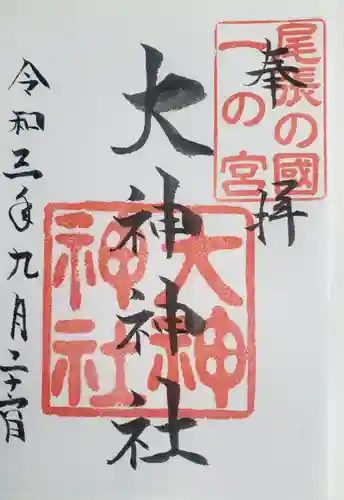 尾張の國
一の宮
奉拝
大神神社
大神
神社
令和三年九月二十六日